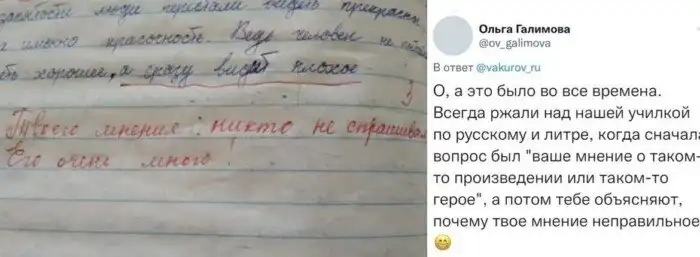 люди перестали видеть прекрасн
а именно красочность. Ведь человек не
ть хорошее, а сразу видят плохое
3
Твоего мнения никто не спрашивал
Его очень много!
Ольга Галимова
@ov_galimova
В ответ @vakurov_ru
О, а это было во все времена.
Всегда ржали над нашей училкой
по русскому и литре, когда сначала
вопрос был "ваше мнение о таком-
то произведении или таком-то
герое", а потом тебе объясняют,
почему твое мнение неправильное